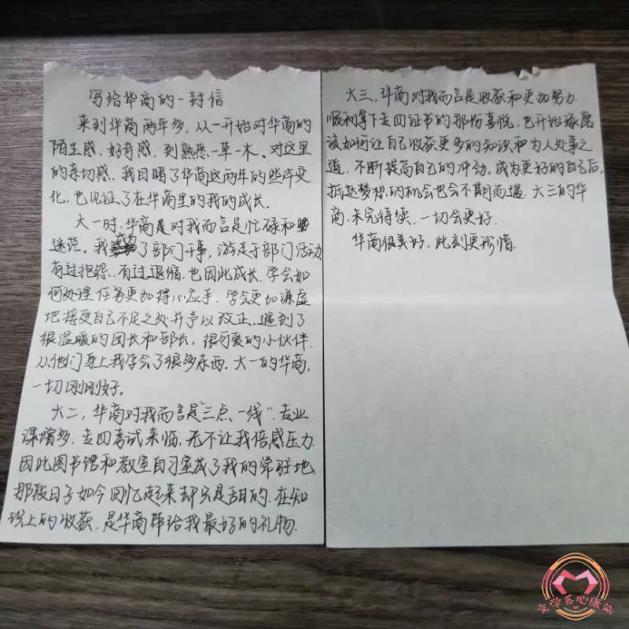 写给华商的一封信
来到华商两年多，从一开始对华商的
陌生感、好奇感，到熟悉一草一木、对这里
的亲切感，我目睹了华商这两年的些许变
化，也见证了在华商里的我的成长。
大一时，华商是对我而言是忙碌和
迷茫。我了部门干事，游走于部门活动
有过抱怨、有过退缩，也因此成长，学会如
何处理任务更加得心应手，学会更加谦虚
地接受自己不足之处并予以改正，遇到了
很温暖的团长和部长，很可爱的小伙伴，
从他们身上我学会了很多东西。大一的华商，
一切刚刚好。
大二，华商对我而言是“三点一线”，专业
课增多，专四考试来临，无不让我倍感压力
因此图书馆和教室自习室成了我的常驻地
那段日子如今回忆起来却只是甜的，在知
识上的收获，是华商带给我最好的礼物。
大三，华商对我而言是收获和更加努力
顺利拿下专四证书的那份喜悦，也开始琢磨
该如何让自己收获更多的知识和为人处事之
道，不断提高自己的，成为更好的自己后，
抵达梦想的机会也会不期而遇。大三的华
商，未完待续，一切会更好。
华商很美好，此刻更珍惜。
文学系心康站